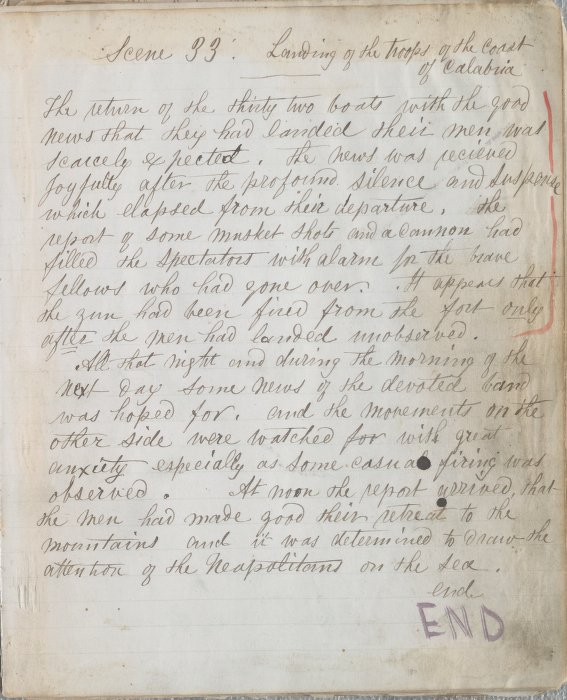 Scene 33. Landing of the troops of the coast
of Calabria
The return of the thirty two boats with the good
news that they had landed their men was
scarcely expected. The news was recieved
joyfully after the profound silence and suspense
which elapsed from their departure. The
report of some musket shots and a cannon had
filled the spectators with alarm for the brave
fellows who had gone over. It appears that
the gun had been fired from the fort only
after the men had landed unobserved.
All that night and during the morning of the
next day some news of the devoted band
was hoped for. and the movements on the
other side were watched for with great
anxiety especially as some casual firing was
observed. At noon the report arrived, that
the men had made good their retreat to the
mountains and it was determined to draw the
attention of the Neapolitans on the sea.
end
END